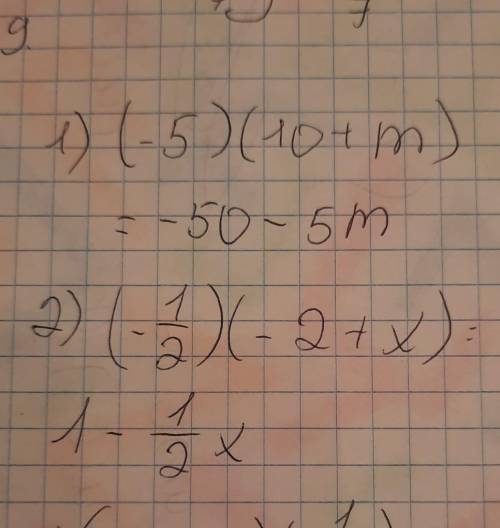 9.
1) (-5)(10+m)
= -50 - 5m
2) (-1/2)(-2+x) =
1 - 1/2 x